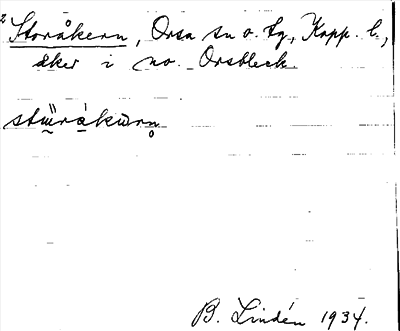 ² Storåkern, Orsa sn o. tg, Kopp. l.,
åker i no. Orsbleck
B. Lindén 1934.